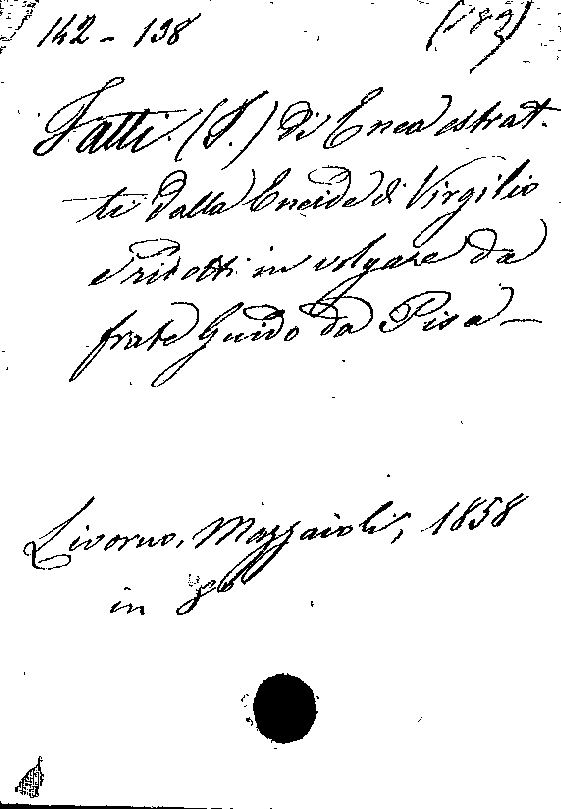 142 - 138 (189)
Fatti. (I.) di Enea estrat-
ti dalla Eneide di Virgilio
e ridotti in volgare da
frate Guido da Pisa -
Livorno, Mazzaioli, 1858
in 8º